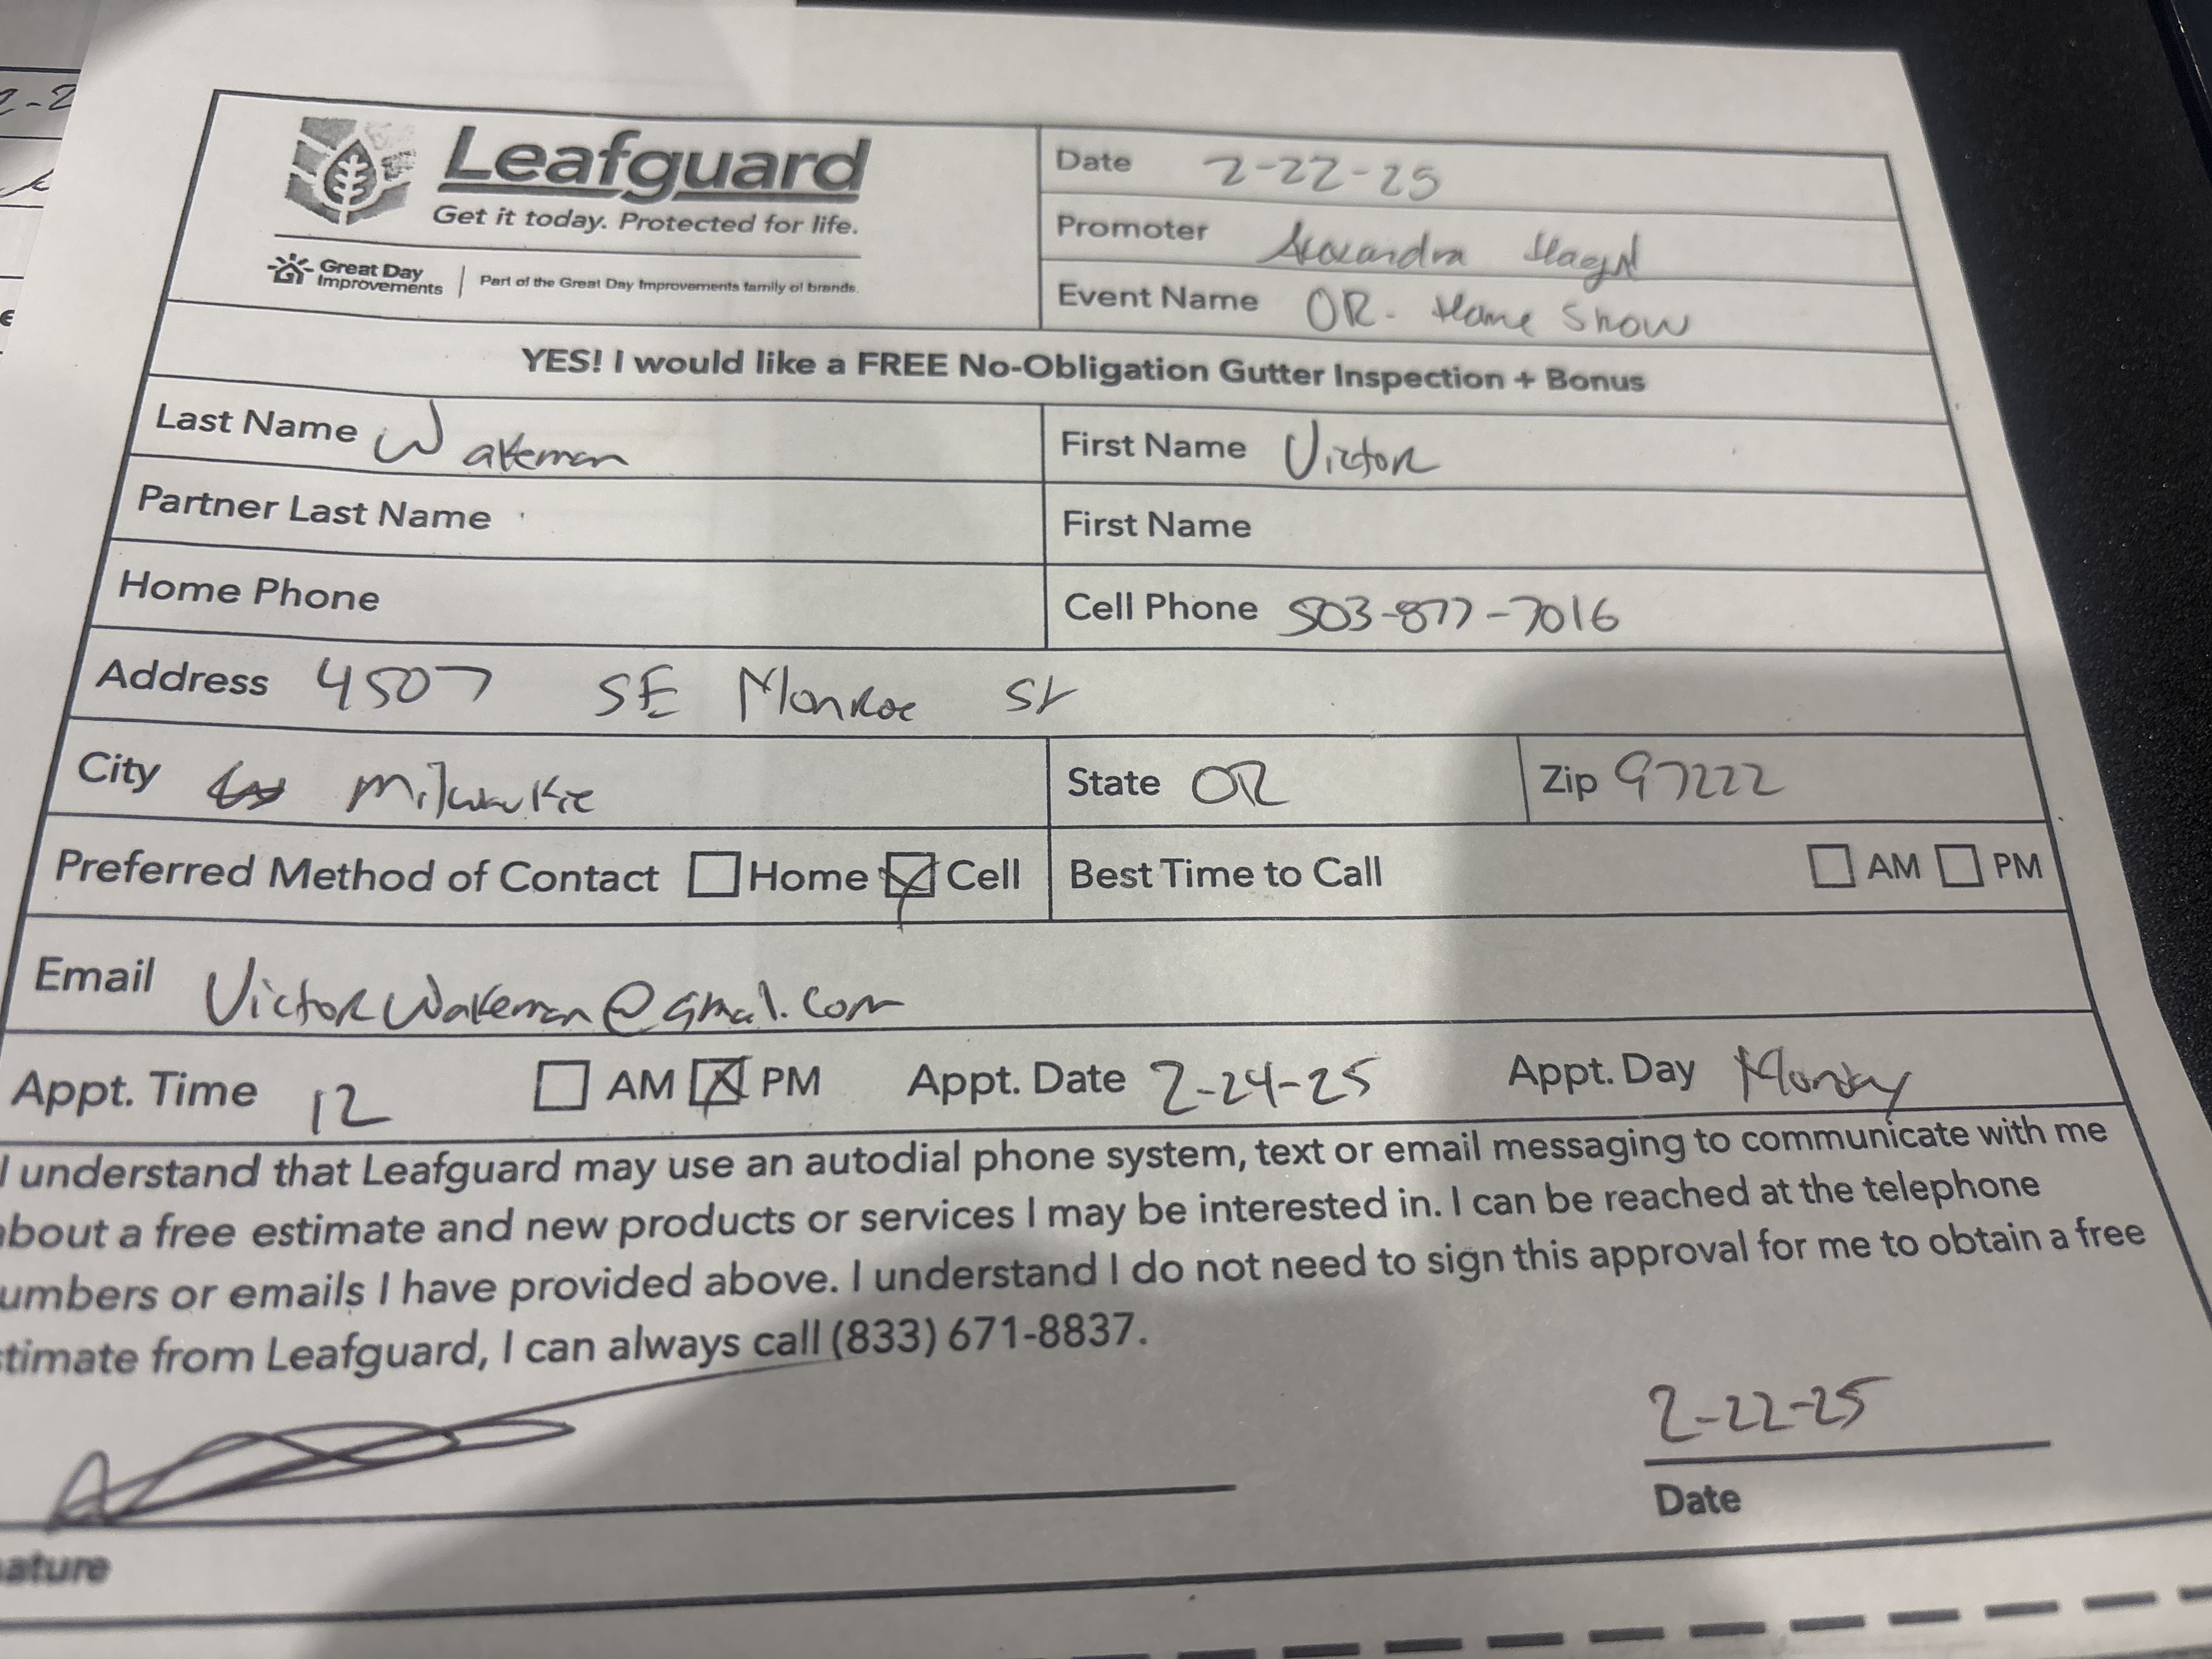 Leafguard
Get it today. Protected for life.
Great Day Improvements | Part of the Great Day Improvements family of brands.
Date 2-22-25
Promoter
Event Name OR. Home Show
YES! I would like a FREE No-Obligation Gutter Inspection + Bonus
Last Name Wakeman First Name Victor
Partner Last Name First Name
Home Phone Cell Phone 503-877-7016
Address 4507 SE Monroe St
City Milwaukie State OR Zip 97222
Preferred Method of Contact Home Cell Best Time to Call AM PM
Email VictorWakeman@gmail.com
Appt. Time 12 AM PM Appt. Date 2-24-25 Appt. Day Monday
I understand that Leafguard may use an autodial phone system, text or email messaging to communicate with me
about a free estimate and new products or services I may be interested in. I can be reached at the telephone
umbers or emails I have provided above. I understand I do not need to sign this approval for me to obtain a free
stimate from Leafguard, I can always call (833) 671-8837.
2-22-25
ature Date